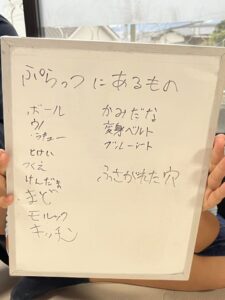 ぷらっつにあるもの
ボール
ウノ
とけい
つくえ
けんだま
まど
モルック
キッチン
かみだな
変身ベルト
ブルーシート
ふさがれた穴